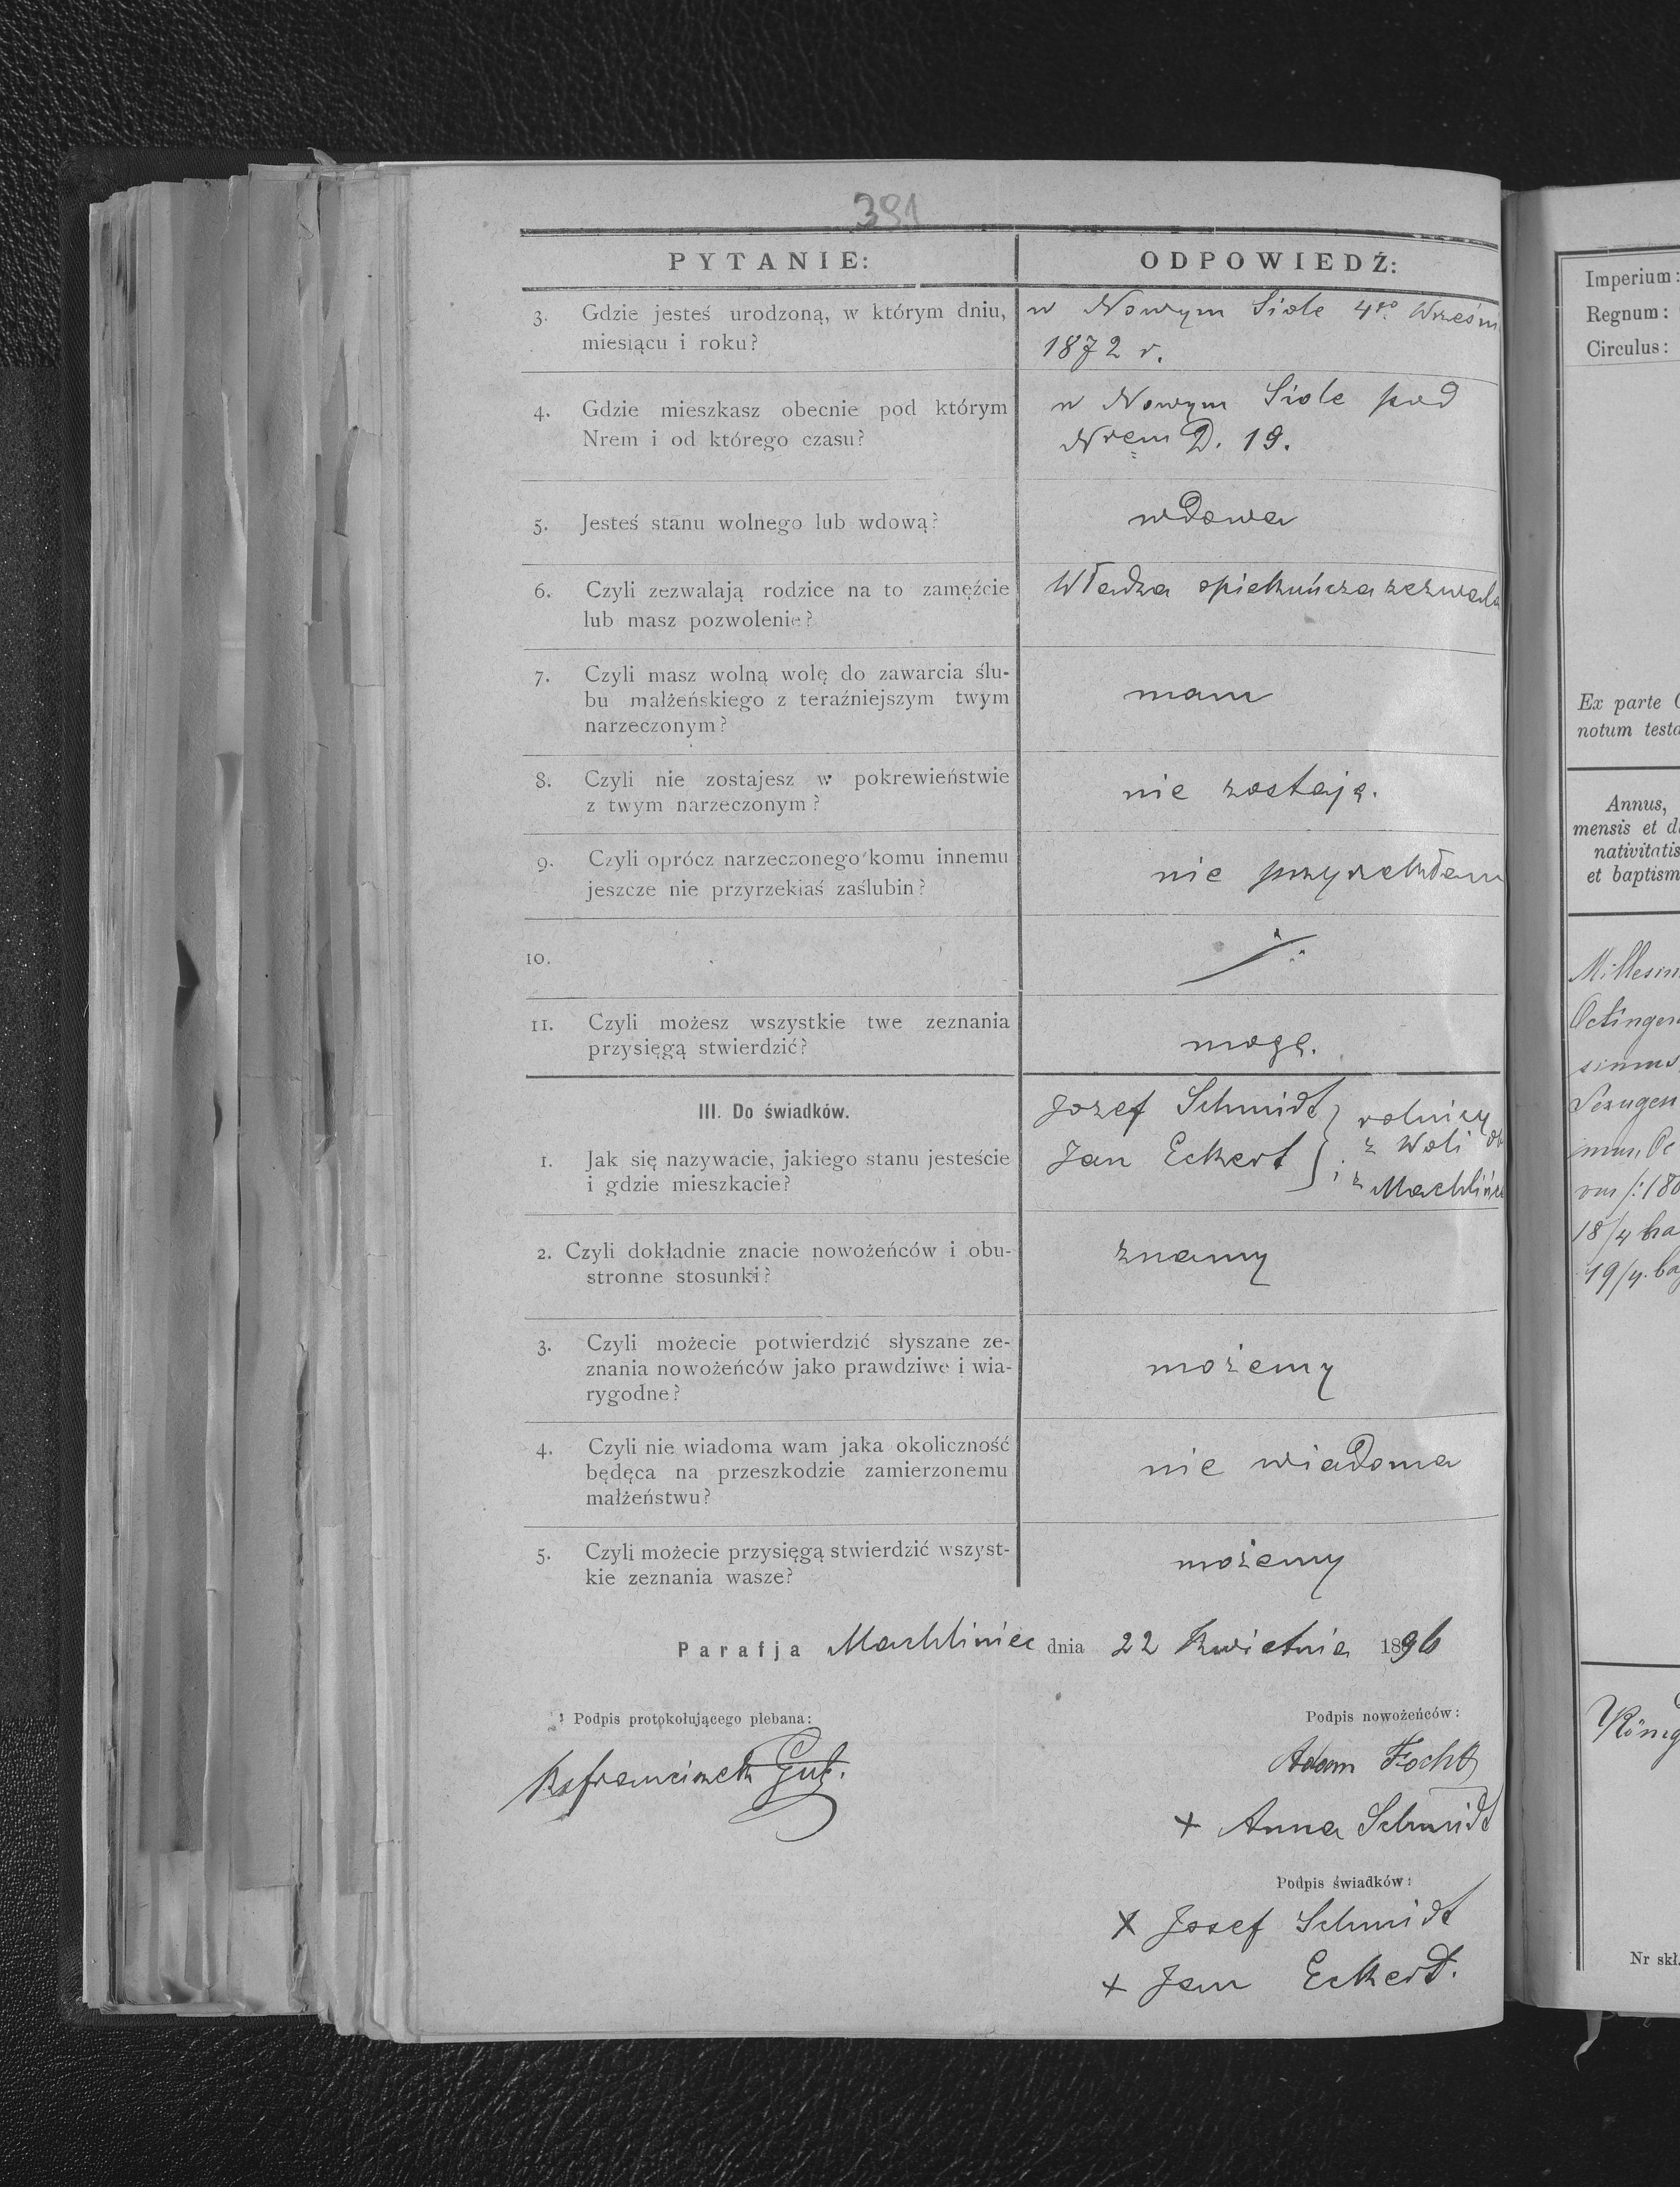 381
PYTANIE:
ODPOWIEDŹ:
3. Gdzie jesteś urodzoną, w którym dniu,
miesiącu i roku?
w Nowym Siole 4go Wrześni
1872 r.
4. Gdzie mieszkasz obecnie pod którym
Nrem i od którego czasu?
w Nowym Siole pod
Nrem D. 19.
5. Jesteś stanu wolnego lub wdową?
wdowa
6. Czyli zezwalają rodzice na to zamęźcie
lub masz pozwolenie?
Władza opiekuńcza zezwala
7. Czyli masz wolną wolę do zawarcia ślu-
bu małżeńskiego z teraźniejszym twym
narzeczonym?
mam
8. Czyli nie zostajesz w pokrewieństwie
z twym narzeczonym?
nie zostaję.
9. Czyli oprócz narzeczonego komu innemu
jeszcze nie przyrzekłaś zaślubin?
nie przyrzekłam
10.
11. Czyli możesz wszystkie twe zeznania
przysięgą stwierdzić?
mogę.
III. Do świadków.
1. Jak się nazywacie, jakiego stanu jesteście
i gdzie mieszkacie?
Jozef Schmidt } rolnicy
Jan Eckert z Woli
i z Machlińca
2. Czyli dokładnie znacie nowożeńców i obu-
stronne stosunki?
znamy
3. Czyli możecie potwierdzić słyszane ze-
znania nowożeńców jako prawdziwe i wia-
rygodne?
możemy
4. Czyli nie wiadoma wam jaka okoliczność
będęca na przeszkodzie zamierzonemu
małżeństwu?
nie wiadoma
5. Czyli możecie przysięgą stwierdzić wszyst-
kie zeznania wasze?
możemy
Parafja Machliniec dnia 22 Kwietnia 1896
Podpis protokołującego plebana:
Podpis nowożeńców:
Ks Franciszek Gut.
Adam Focht
+ Anna Schmidt
Podpis świadków:
+ Josef Schmidt
+ Jan Eckert.
Imperium:
Regnum:
Circulus:
Ex parte
notum testo
Annus,
mensis et d
nativitatis
et baptism
Millesim
Octingen
simus
mus, Oc
18/4 ha
19/4. ba
König
Nr skł.